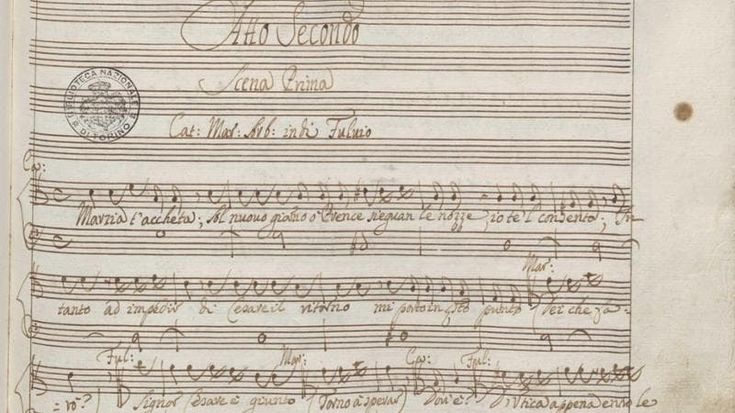 Atto Secondo
Scena Prima
BIBLIOTECA NAZIONALE DI TORINO
Cat: Mar: Arb: indi Fulvio
Ca:
Marzia t'accheta; Al nuovo giorno o Prence sieguan le nozze, io te'l consento; In-
Mar:
tanto ad impedir di Cesare il ritorno mi porto in questo punto Dei che fa-
Ful: Mar: Ca: Ful:
=rò? Signor Cesare è giunto Torno a sperar Dov'è? D'Utica appena entrò le